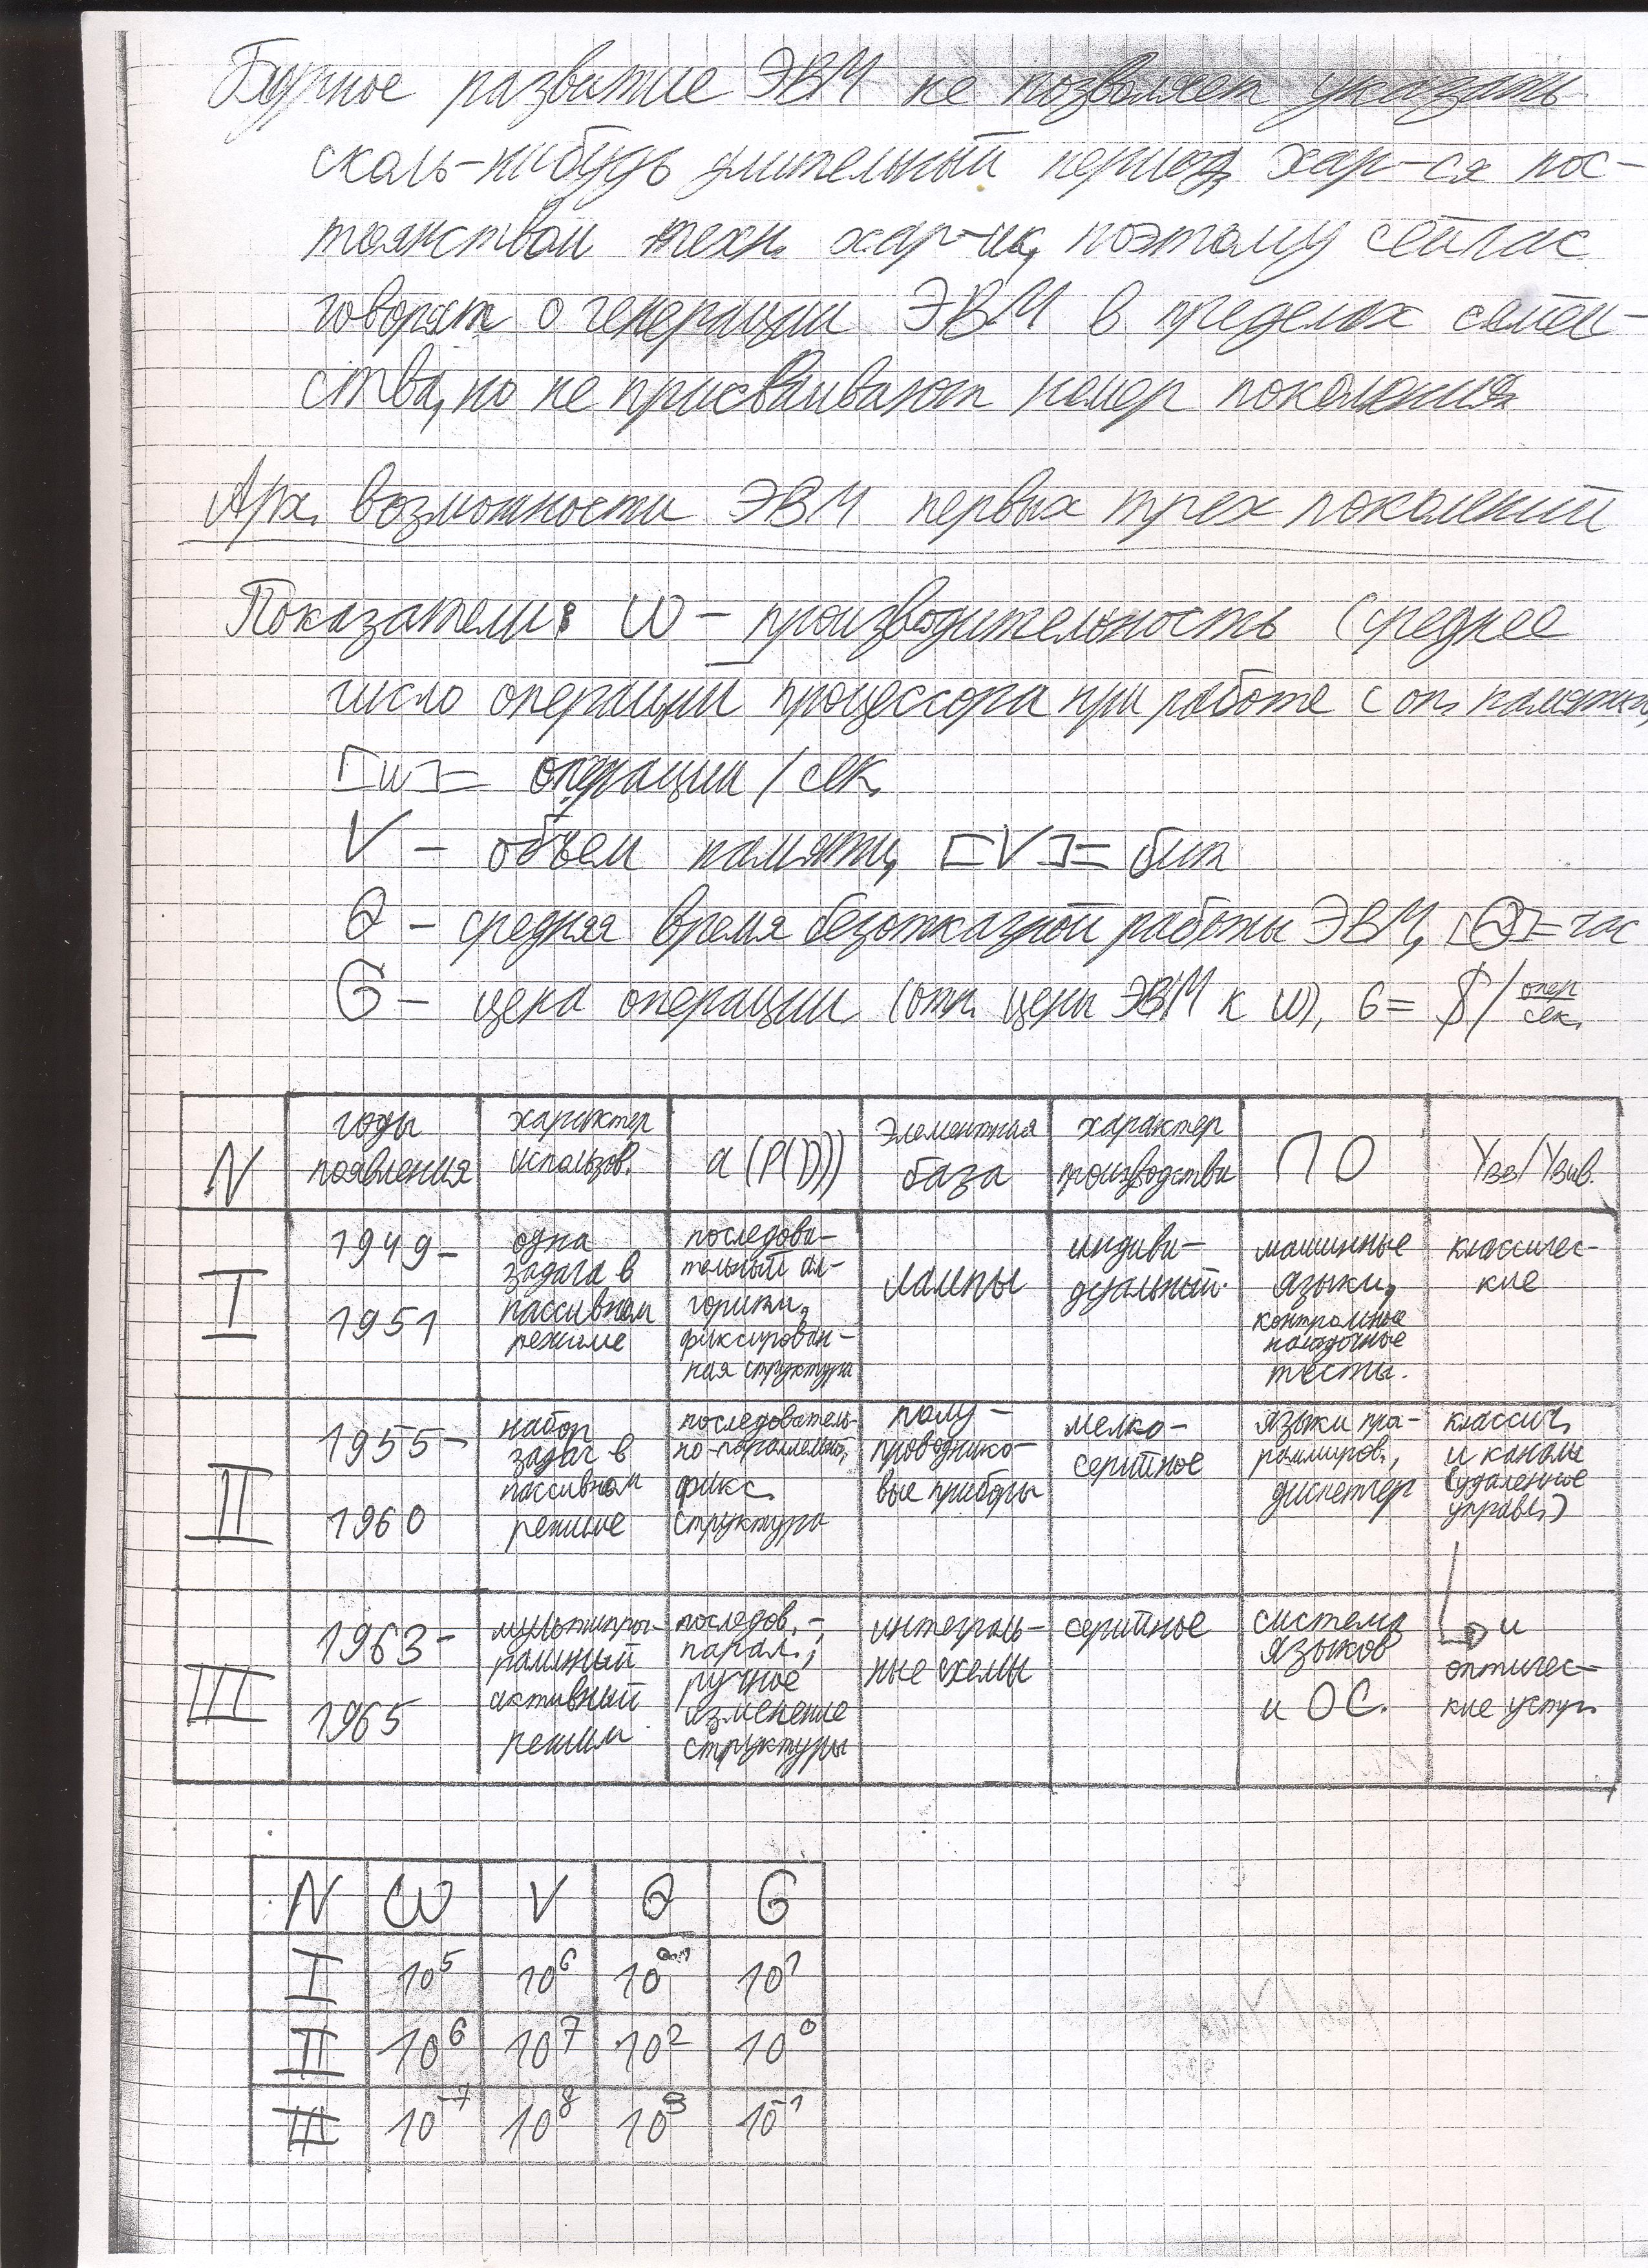 Бурное развитие ЭВМ не позволяет указать
сколь-нибудь длительный период, хар-ся пос-
тоянством техн. хар-ик, поэтому сейчас
говорят о генерации ЭВМ в пределах семей-
ства, но не присваивают номер поколения
Арх. возможности ЭВМ первых трех поколений
Показатели: ω – производительность (среднее
число операций процессора при работе с оп. памятью,
[ω]= операции/сек.
V – объем памяти, [V]= бит
Θ – средняя время безотказной работы ЭВМ, [Θ]=час
G – цена операции (отн. цены ЭВМ к ω), G= $/опер/сек.
N | годы появления | характер использов. | а(P(D))) | Элементная база | характер производства | ПО | Yвв/Yвыв.
I | 1949– 1951 | одна задача в пассивном режиме | последова-тельный ал-горитм, фиксирован-ная структура | лампы | индиви-дуальный. | машинные языки, контрольные наладочные тесты. | классичес-кие
II | 1955– 1960 | набор задач в пассивном режиме | последователь-но-параллельно, фикс. структура | полу-проводнико-вые приборы | мелко-серийное | языки про-граммиров., диспетчер | классич. и каналы (удаленное управл.)
III | 1963– 1965 | мультипрог-раммный активный режим | последов.-парал.; ручное изменение структуры | интеграль-ные схемы | серийное | система языков и ОС. | и оптичес-кие устр.
N | ω | V | Θ | G
I | 10⁵ | 10⁶ | 10 | 10¹
II | 10⁶ | 10⁷ | 10² | 10⁰
III | 10⁷ | 10⁸ | 10³ | 10⁻¹